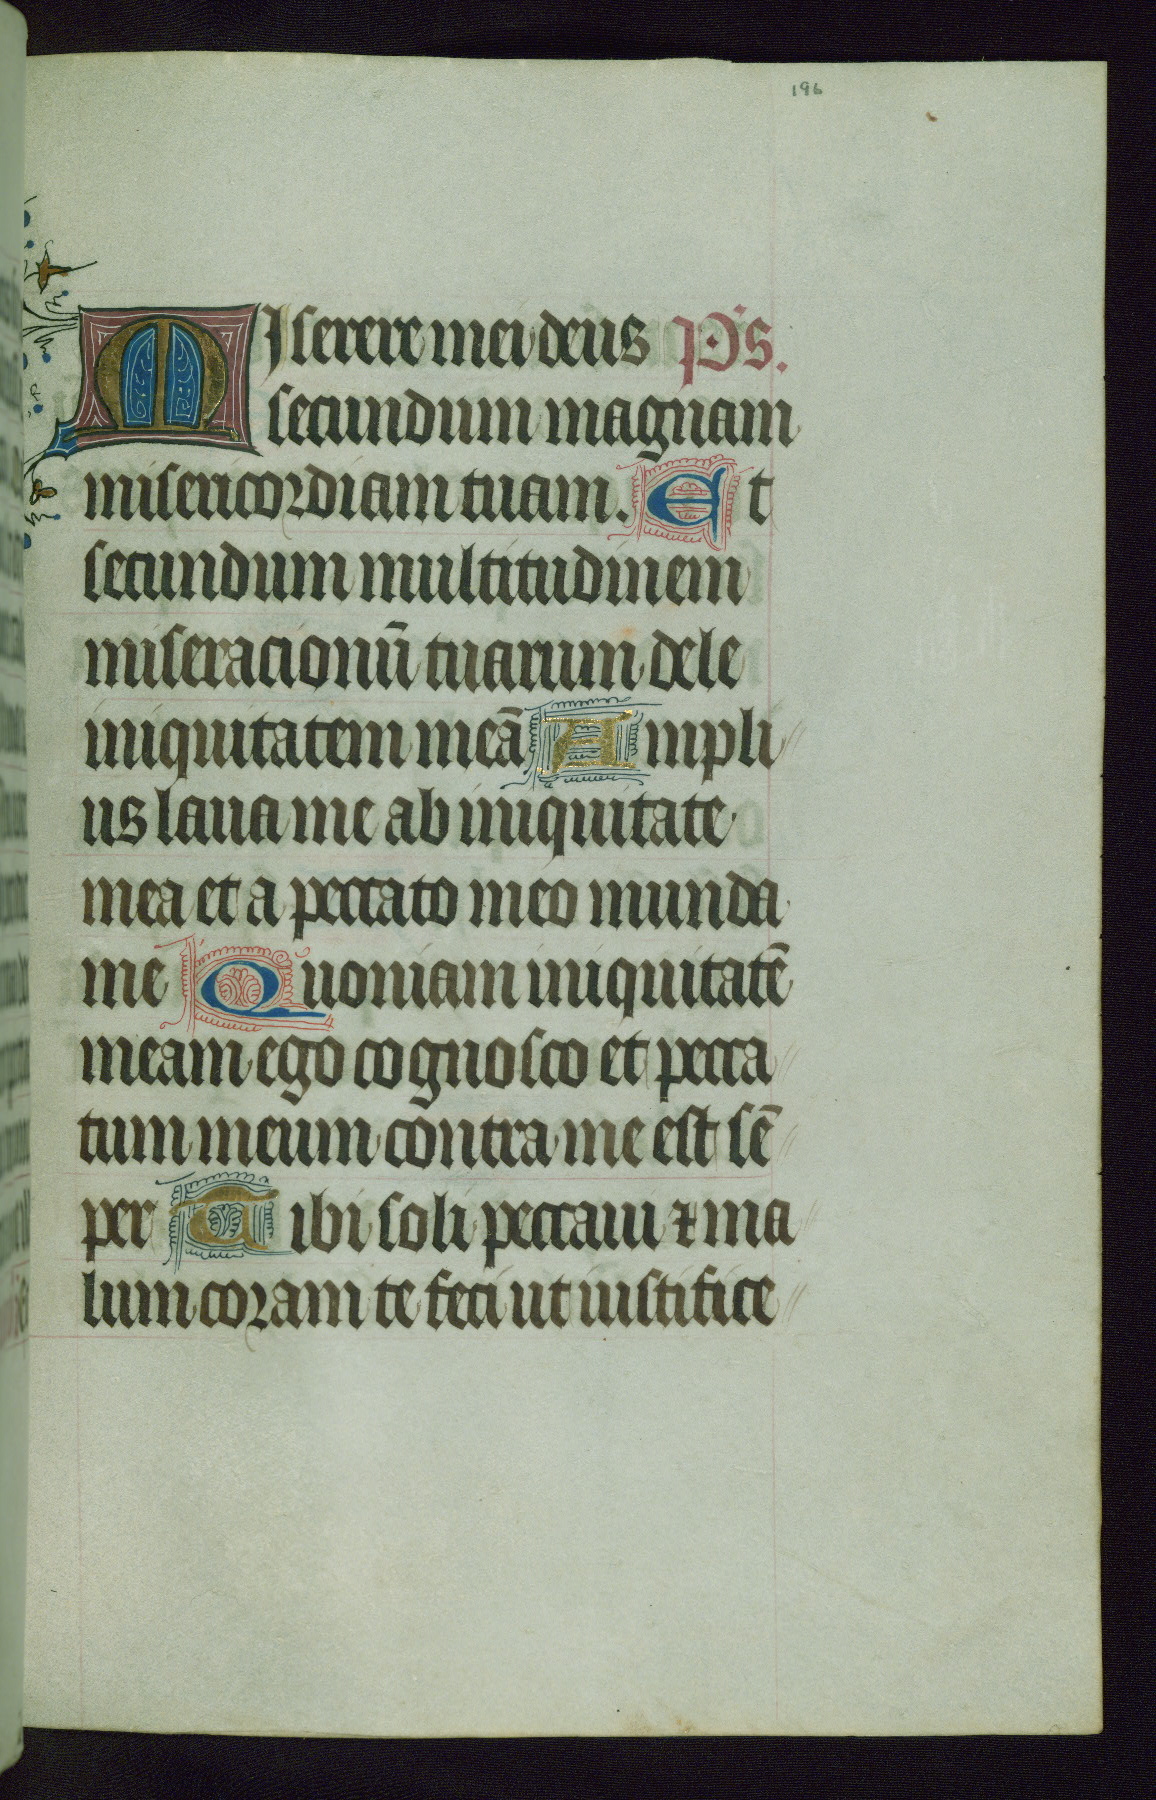 196
Miserere mei deus Ps.
secundum magnam
misericordiam tuam. Et
secundum multitudinem
miseracionū tuarum dele
iniquitatem meā Ampli
us laua me ab iniquitate
mea et a peccato meo munda
me Quoniam iniquitatē
meam ego cognosco et pecca
tum meum contra me est sē
per Tibi soli peccaui ⁊ ma
lum coram te feci ut iustifice